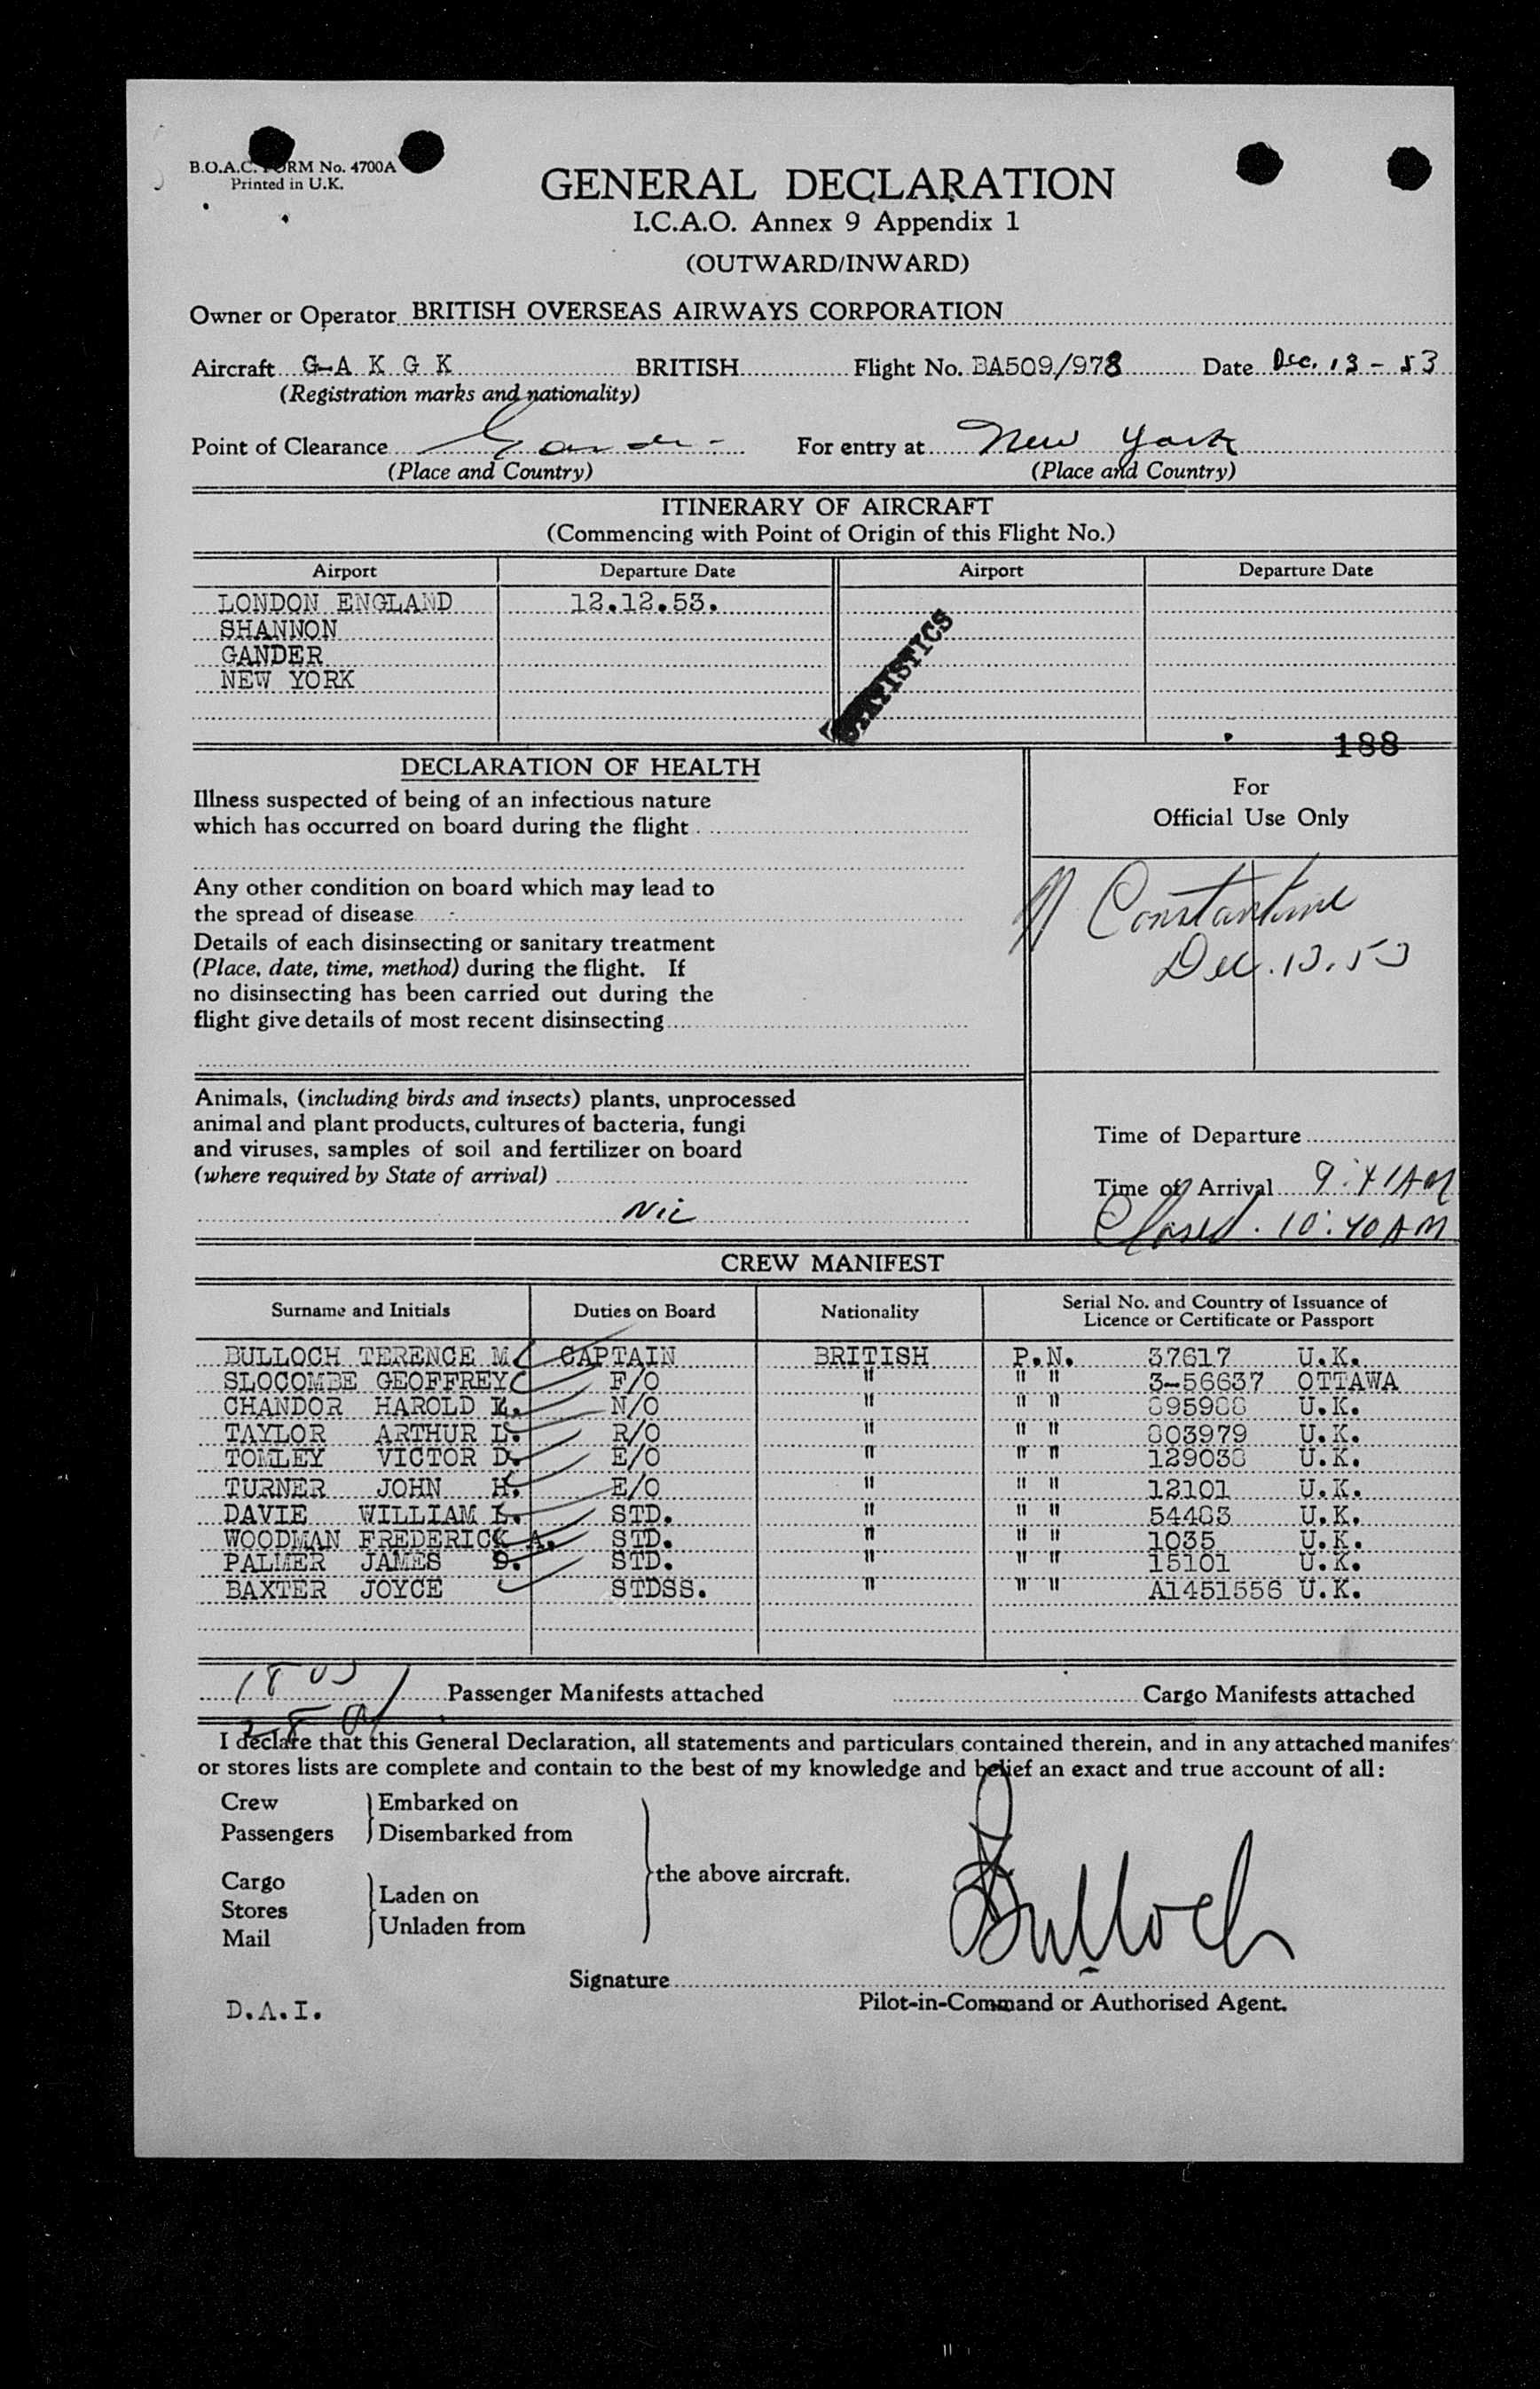 B.O.A.C. FORM No. 4700A
Printed in U.K.
GENERAL DECLARATION
I.C.A.O. Annex 9 Appendix 1
(OUTWARD/INWARD)
Owner or Operator BRITISH OVERSEAS AIRWAYS CORPORATION
Aircraft G-A K G K BRITISH Flight No. BA509/978 Date Dec. 13 - 53
(Registration marks and nationality)
Point of Clearance Gander For entry at New York
(Place and Country) (Place and Country)
ITINERARY OF AIRCRAFT
(Commencing with Point of Origin of this Flight No.)
Airport Departure Date Airport Departure Date
LONDON ENGLAND 12.12.53.
SHANNON
GANDER
NEW YORK
STATISTICS
188
DECLARATION OF HEALTH
Illness suspected of being of an infectious nature
which has occurred on board during the flight
Any other condition on board which may lead to
the spread of disease
Details of each disinsecting or sanitary treatment
(Place, date, time, method) during the flight. If
no disinsecting has been carried out during the
flight give details of most recent disinsecting
For
Official Use Only
Constantine
Dec. 13. 53
Animals, (including birds and insects) plants, unprocessed
animal and plant products, cultures of bacteria, fungi
and viruses, samples of soil and fertilizer on board
(where required by State of arrival)
Nil
Time of Departure
Time of Arrival 9:41AM
Closed. 10:40AM
CREW MANIFEST
Surname and Initials Duties on Board Nationality Serial No. and Country of Issuance of
Licence or Certificate or Passport
BULLOCH TERENCE M. CAPTAIN BRITISH P.N. 37617 U.K.
SLOCOMBE GEOFFREY F/O " " " 3-56637 OTTAWA
CHANDOR HAROLD L. N/O " " " U.K.
TAYLOR ARTHUR L. R/O " " " 803979 U.K.
TOMLEY VICTOR D. E/O " " " 129038 U.K.
TURNER JOHN H. E/O " " " 12101 U.K.
DAVIE WILLIAM L. STD. " " " 54483 U.K.
WOODMAN FREDERICK A. STD. " " " 1035 U.K.
PALMER JAMES S. STD. " " " 15101 U.K.
BAXTER JOYCE STDSS. " " " A1451556 U.K.
Passenger Manifests attached Cargo Manifests attached
I declare that this General Declaration, all statements and particulars contained therein, and in any attached manifes
or stores lists are complete and contain to the best of my knowledge and belief an exact and true account of all:
Crew Embarked on
Passengers Disembarked from
the above aircraft.
Cargo
Stores Laden on
Mail Unladen from
Bulloch
Signature
Pilot-in-Command or Authorised Agent.
D.A.I.